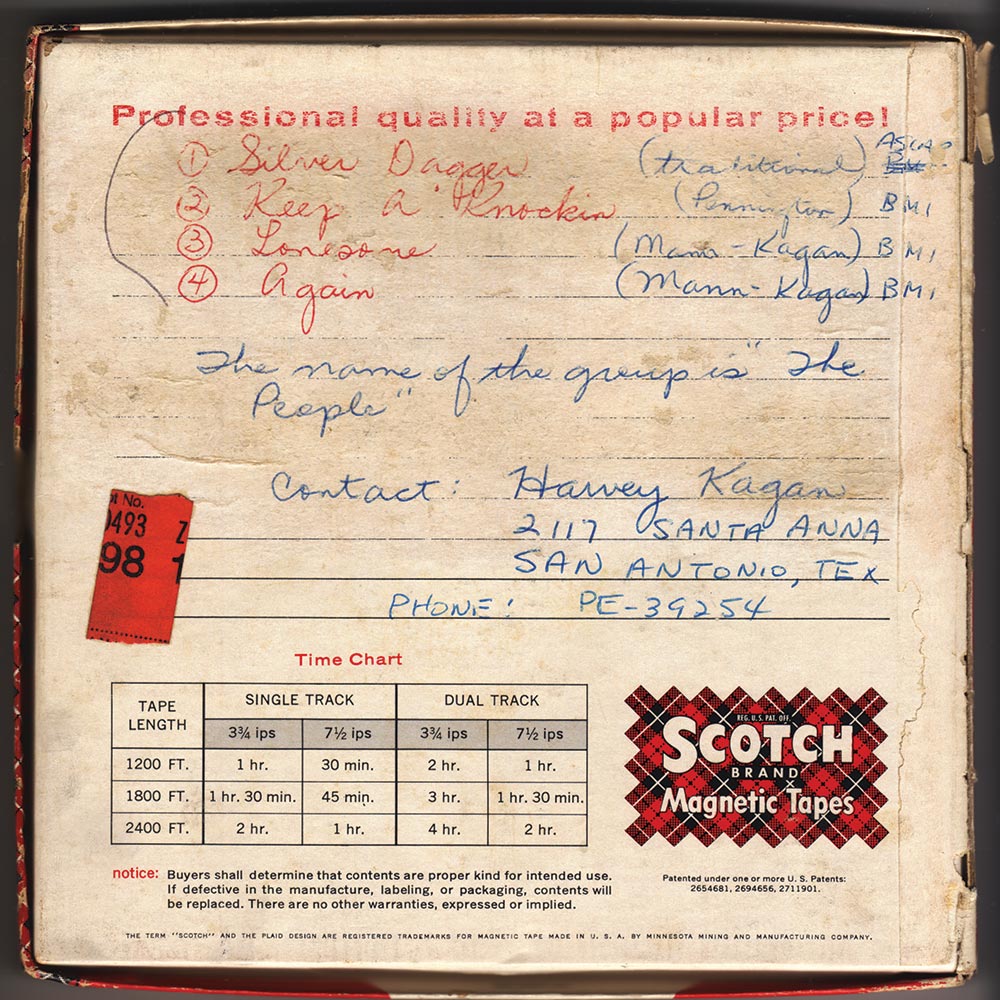 Professional quality at a popular price!
① Silver Dagger (traditional) ASCAP
② Keep a' Knockin (Pennington) BMI
③ Lonesome (Mann-Kagan) BMI
④ Again (Mann-Kagan) BMI
The name of the group is "The
People"
Contact: Harvey Kagan
2117 SANTA ANNA
SAN ANTONIO, TEX
PHONE: PE-39254
No.
493 Z
98 1
Time Chart
TAPE LENGTH SINGLE TRACK DUAL TRACK
3¾ ips 7½ ips 3¾ ips 7½ ips
1200 FT. 1 hr. 30 min. 2 hr. 1 hr.
1800 FT. 1 hr. 30 min. 45 min. 3 hr. 1 hr. 30 min.
2400 FT. 2 hr. 1 hr. 4 hr. 2 hr.
REG. U.S. PAT. OFF.
SCOTCH
BRAND
Magnetic Tapes
notice: Buyers shall determine that contents are proper kind for intended use.
If defective in the manufacture, labeling, or packaging, contents will
be replaced. There are no other warranties, expressed or implied.
Patented under one or more U. S. Patents:
2654681, 2694656, 2711901.
THE TERM "SCOTCH" AND THE PLAID DESIGN ARE REGISTERED TRADEMARKS FOR MAGNETIC TAPE MADE IN U. S. A. BY MINNESOTA MINING AND MANUFACTURING COMPANY.